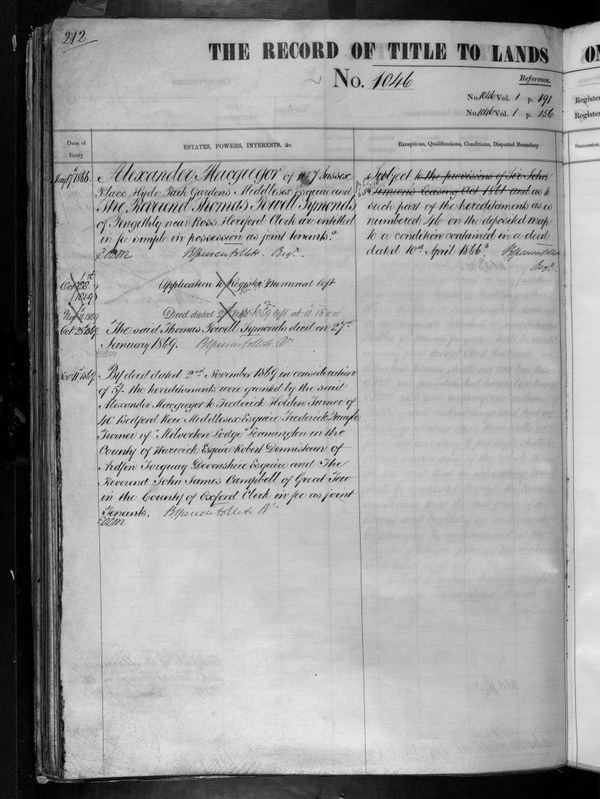 212
THE RECORD OF TITLE TO LANDS
No. 1046
Reference.
No. 1046 Vol. 1 p. 191
No. 1046 Vol. 1 p. 156
Register
Register
Date of Entry
ESTATES, POWERS, INTERESTS, &c.
Exceptions, Qualifications, Conditions, Disputed Boundary
Possession,
1866
Alexander Macgregor of No 7 Sussex
Place Hyde Park Gardens Middlesex Esquire and
The Reverend Thomas Powell Symonds
of Pengethly near Ross Hereford Clerk are entitled
in fee simple in possession as joint tenants.
Subject to the provisions of Sir John
as to
such part of the hereditaments as is
numbered 46 on the deposited map
to a condition contained in a deed
dated 10th April 1866
1869
Application to Register Memorial left
Nov 1869
Deed dated
left at
Oct 25 1869
The said Thomas Powell Symonds died on 27th
January 1869.
1869
By deed dated 2nd November 1869 in consideration
of 5/- the hereditaments were granted by the said
Alexander Macgregor to Frederick Holden Turner of
40 Bedford Row Middlesex Esquire Frederick
Turner of "Milverton Lodge" Leamington in the
County of Warwick Esquire Robert Dennistoun of
Torquay Devonshire Esquire and The
Reverend John James Campbell of Great Tew
in the County of Oxford Clerk in fee as joint
Tenants.